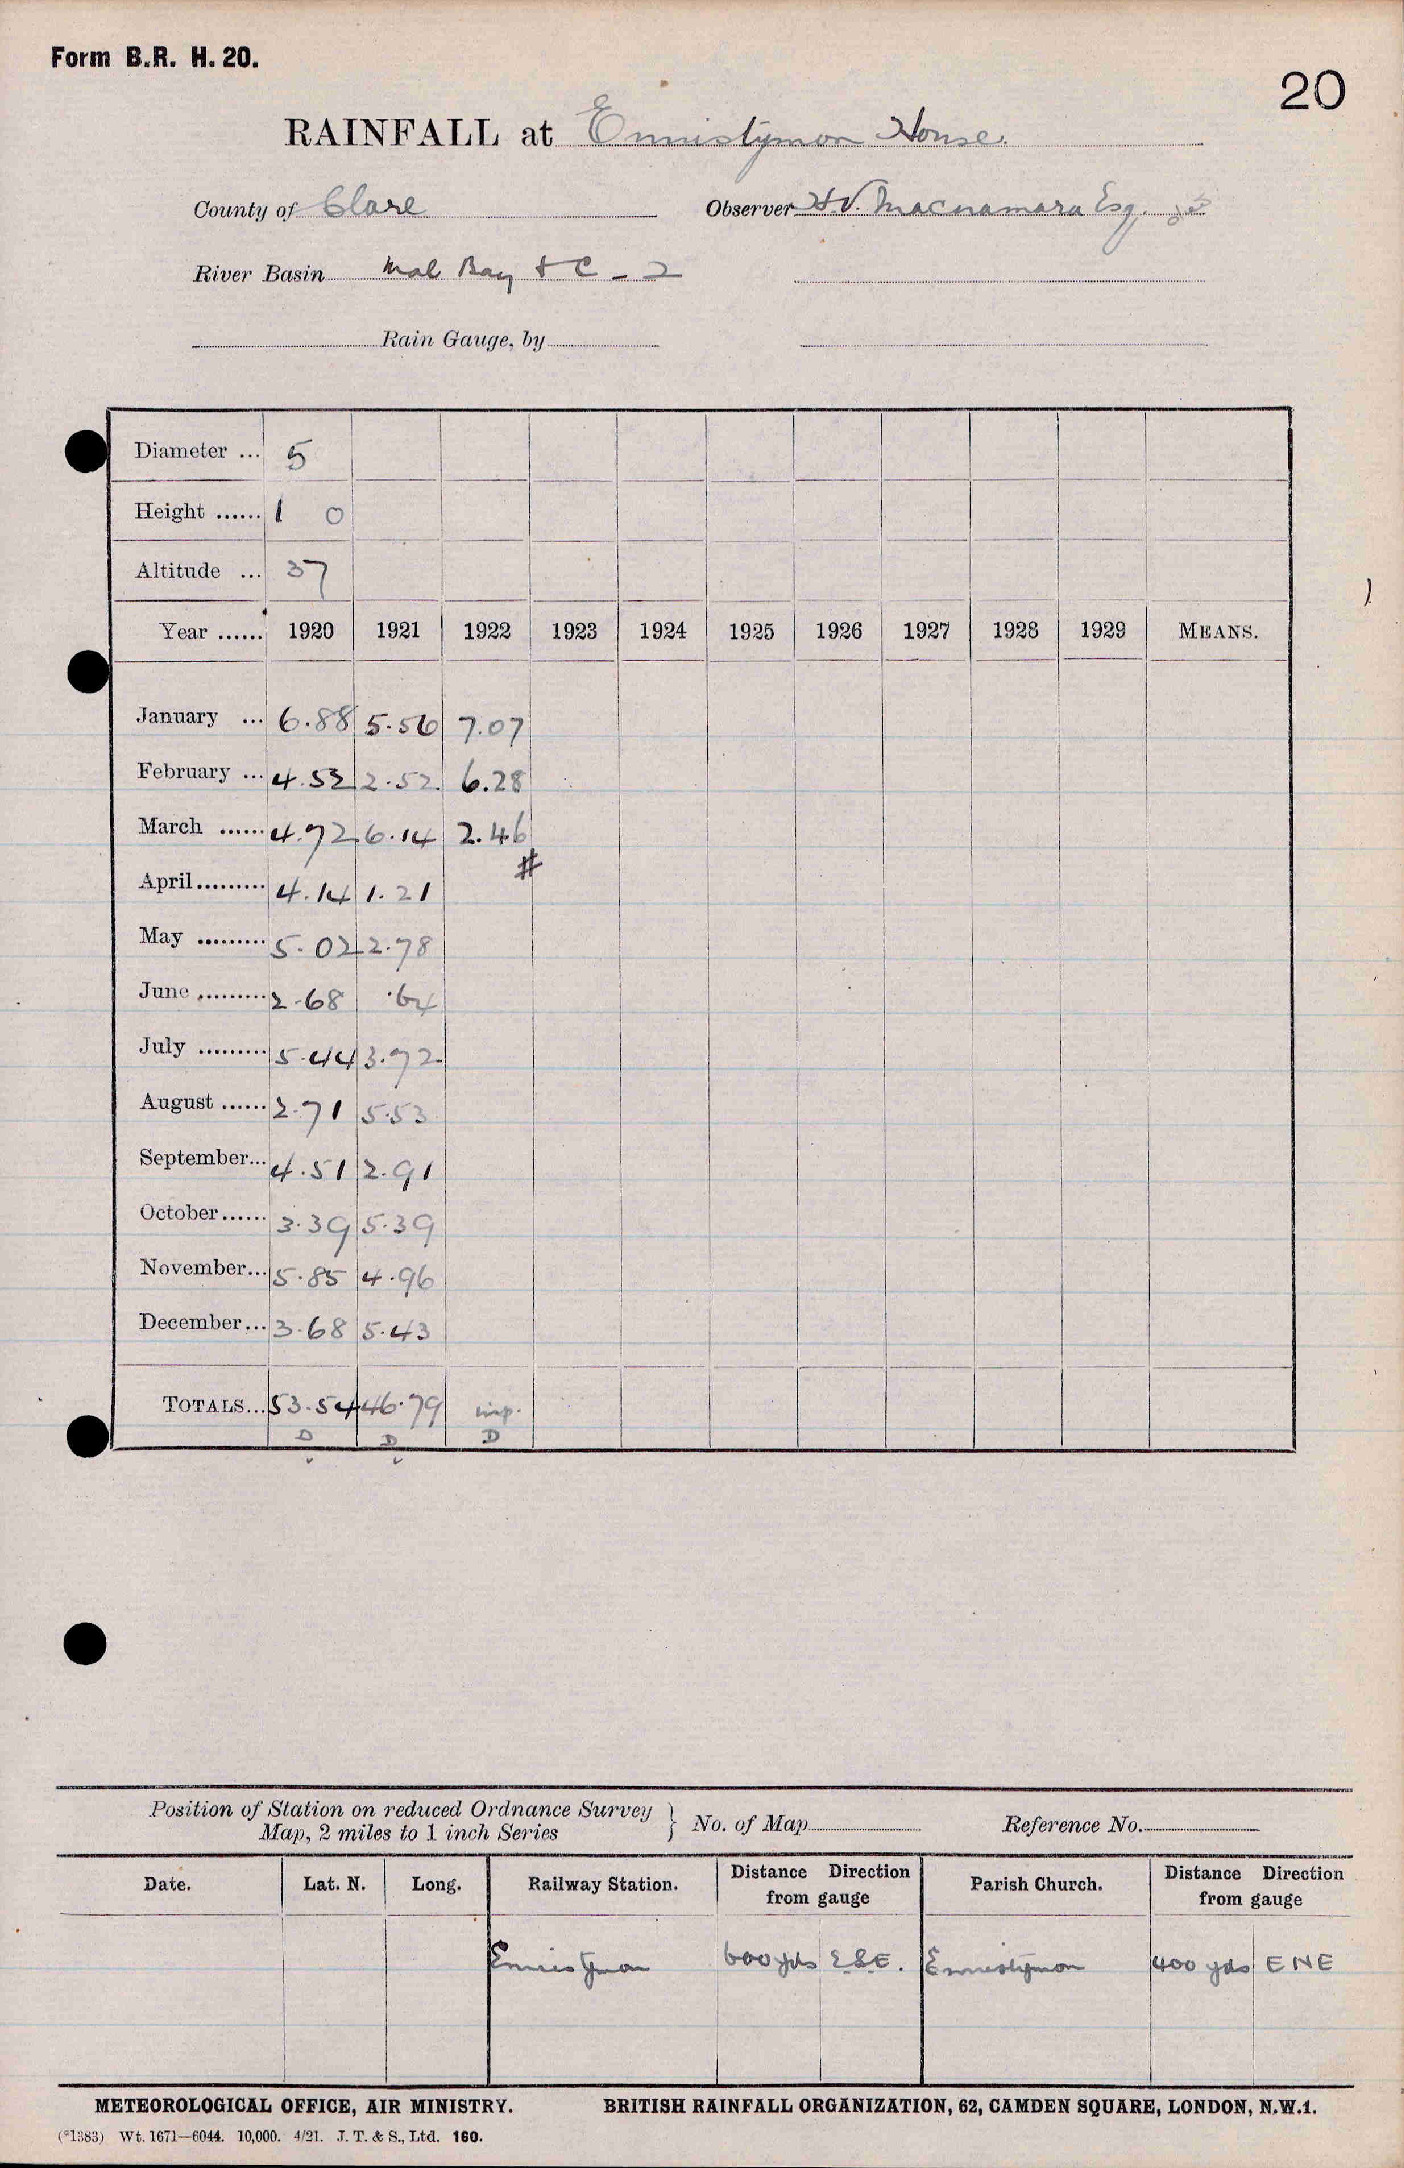 Form B.R. H. 20.
20
RAINFALL at Ennistymon House.
County of Clare Observer H.V. Macnamara Esq.
River Basin Mal Bay & C - 2
Rain Gauge, by
Diameter ... 5
Height ...... 1 0
Altitude ... 37
Year ...... 1920 1921 1922 1923 1924 1925 1926 1927 1928 1929 MEANS.
January ... 6.88 5.56 7.07
February ... 4.52 2.52 6.28
March ...... 4.72 6.14 2.46
#
April ......... 4.14 1.21
May ......... 5.02 2.78
June ......... 2.68 .64
July ......... 5.44 3.72
August ...... 2.71 5.53
September... 4.51 2.91
October...... 3.39 5.39
November... 5.85 4.96
December... 3.68 5.43
TOTALS... 53.54 46.79 imp.
D D D
Position of Station on reduced Ordnance Survey
Map, 2 miles to 1 inch Series } No. of Map Reference No.
Date. Lat. N. Long. Railway Station. Distance Direction from gauge Parish Church. Distance Direction from gauge
Ennistymon 600 yds E.S.E. Ennistymon 400 yds ENE
METEOROLOGICAL OFFICE, AIR MINISTRY. BRITISH RAINFALL ORGANIZATION, 62, CAMDEN SQUARE, LONDON, N.W.1.
(*1383) Wt. 1671—6044. 10,000. 4/21. J. T. & S., Ltd. 160.